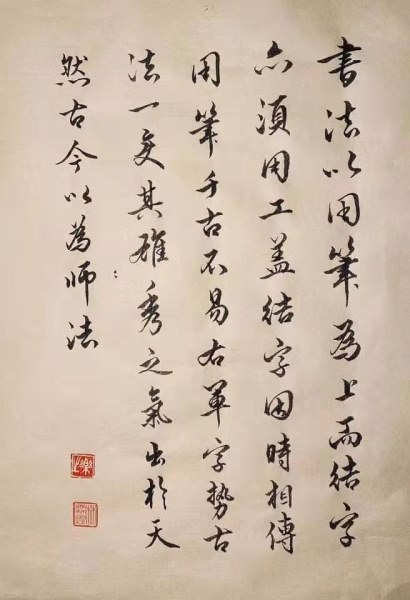 書法以用筆為上而結字
亦須用工蓋結字因時相傳
用筆千古不易右軍字勢古
法一变其雄秀之氣出於天
然古今以為師法